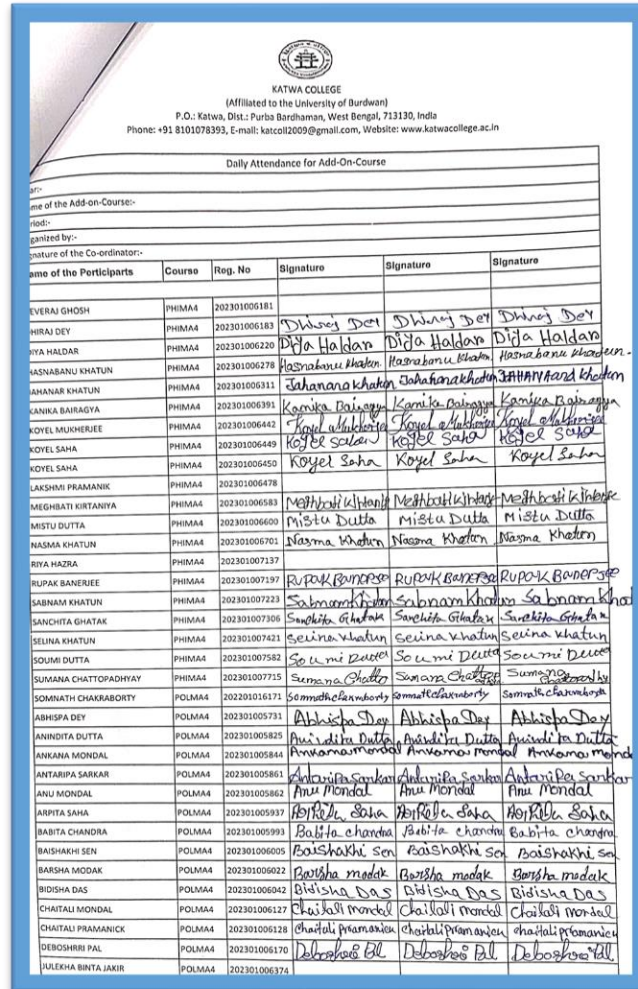 KATWA COLLEGE
(Affiliated to the University of Burdwan)
P.O.: Katwa, Dist.: Purba Bardhaman, West Bengal, 713130, India
Phone: +91 8101078393, E-mail: katcoll2009@gmail.com, Website: www.katwacollege.ac.in
Daily Attendance for Add-On-Course
ar:-
me of the Add-on-Course:-
riod:-
ganized by:-
nature of the Co-ordinator:-
ame of the Porticiparts Course Reg. No Signature Signature Signature
EVERAJ GHOSH PHIMA4 202301006181
HIRAJ DEY PHIMA4 202301006183 Dhiraj Dey Dhiraj Dey Dhiraj Dey
IYA HALDAR PHIMA4 202301006220 Diya Haldar Diya Haldar Diya Haldar
HASNABANU KHATUN PHIMA4 202301006278 Hasnabanu Khatun. Hasnabanu Khatun. Hasnabanu Khatun.
AHANAR KHATUN PHIMA4 202301006311 Jahanara khatun Jahanara khatun JAHANAra khatun
KANIKA BAIRAGYA PHIMA4 202301006391 Kanika Bairagya Kanika Bairagya Kanika Bairagya
KOYEL MUKHERJEE PHIMA4 202301006442 Koyel Mukherjee Koyel Mukherjee Koyel Mukherjee
KOYEL SAHA PHIMA4 202301006449 Koyel Saha Koyel Saha Koyel Saha
KOYEL SAHA PHIMA4 202301006450 Koyel Saha Koyel Saha Koyel Saha
LAKSHMI PRAMANIK PHIMA4 202301006478
MEGHBATI KIRTANIYA PHIMA4 202301006583 Meghbati Meghbati Meghbati
MISTU DUTTA PHIMA4 202301006600 Mistu Dutta Mistu Dutta Mistu Dutta
NASMA KHATUN PHIMA4 202301006701 Nasma Khatun Nasma Khatun Nasma Khatun
RIYA HAZRA PHIMA4 202301007137
RUPAK BANERJEE PHIMA4 202301007197 RUPAK BANERJEE RUPAK BANERJEE RUPAK BANERJEE
SABNAM KHATUN PHIMA4 202301007223 Sabnam Khatun Sabnam Khatun Sabnam Khat
SANCHITA GHATAK PHIMA4 202301007306 Sanchita Ghatak Sanchita Ghatak Sanchita Ghatak
SELINA KHATUN PHIMA4 202301007421 Selina khatun Selina khatun Selina khatun
SOUMI DUTTA PHIMA4 202301007582 Soumi Dutta Soumi Dutta Soumi Dutta
SUMANA CHATTOPADHYAY PHIMA4 202301007715 Sumana Sumana Sumana
SOMNATH CHAKRABORTY POLMA4 202201016171 Somnath chakraborty somnath chakraborty somnath chakraborty
ABHISPA DEY POLMA4 202301005731 Abhispa Dey Abhispa Dey Abhispa Dey
ANINDITA DUTTA POLMA4 202301005825 Anindita Dutta Anindita Dutta Anindita Dutta
ANKANA MONDAL POLMA4 202301005844 Ankana mondal Ankana mondal Ankana mond
ANTARIPA SARKAR POLMA4 202301005861 Antaripa Sarkar Antaripa Sarkar Antaripa Sarkar
ANU MONDAL POLMA4 202301005862 Anu Mondal Anu Mondal Anu Mondal
ARPITA SAHA POLMA4 202301005937 Arpita Saha Arpita Saha Arpita Saha
BABITA CHANDRA POLMA4 202301005993 Babita chandra Babita chandra Babita chandra
BAISHAKHI SEN POLMA4 202301006005 Baishakhi Sen Baishakhi Sen Baishakhi Sen
BARSHA MODAK POLMA4 202301006022 Barsha modak Barsha modak Barsha modak
BIDISHA DAS POLMA4 202301006042 Bidisha Das Bidisha Das Bidisha Das
CHAITALI MONDAL POLMA4 202301006127 Chaitali mondal Chaitali mondal Chaitali mondal
CHAITALI PRAMANICK POLMA4 202301006128 chaitali pramanick chaitali pramanick chaitali pramanick
DEBOSHRRI PAL POLMA4 202301006170 Deboshri Pal Deboshri Pal Deboshri Pal
JULEKHA BINTA JAKIR POLMA4 202301006374